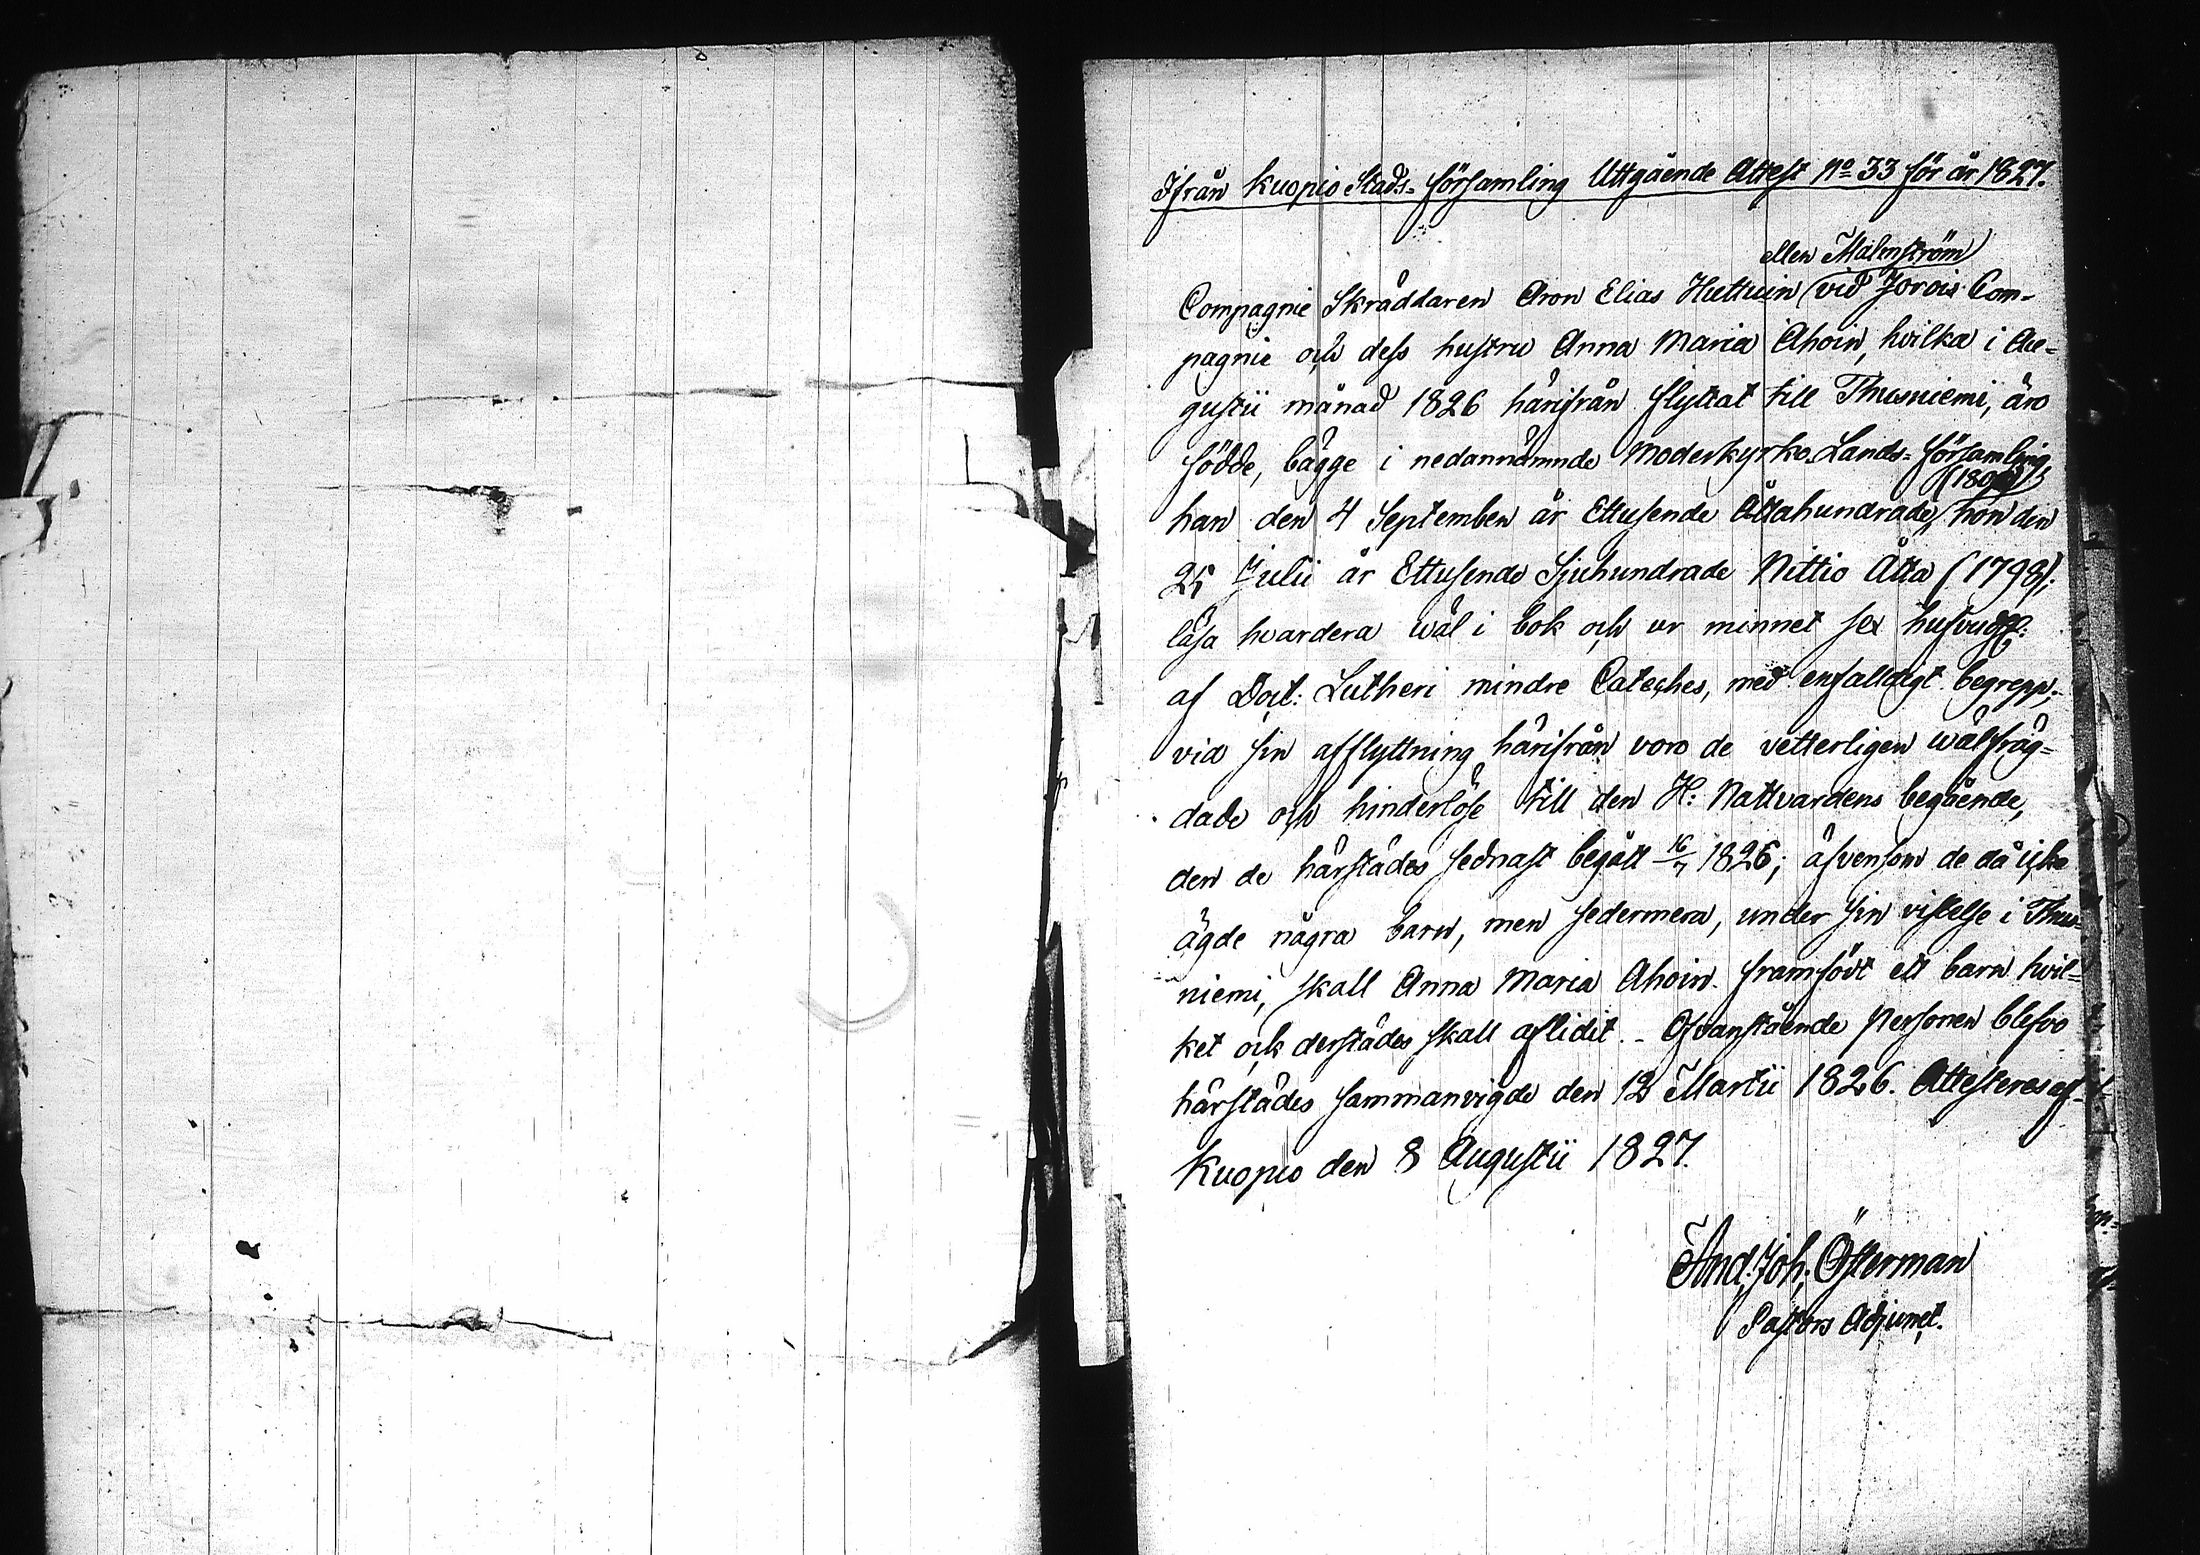 Ifrån Kuopio Stads-församling Uttgående Attest No 33 för år 1827.
eller Malmström
Compagnie Skräddaren Aron Elias Huttuin (vid Jorois Com-
pagnie och dess hustru Anna Maria Ahoin, hvilka i Au-
gustii månad 1826 härifrån flyttat till Thusniemi, äro
födde, bägge i nedannämnde Moderkyrko Lands-församling,
(1800)
han den 4 September år Ettusende Åttahundrade, hon den
25 Julii år Ettusende Sjuhundrade Nittio Åtta (1798);
läsa hvardera wäl i bok och ur minnet sex hufvud
af Doct: Lutheri mindre Cateches, med enfalldigt begrepp;
vid sin afflyttning härifrån voro de vetterligen wälfräg-
dade och hinderlöse till den H: Nattvardens begående,
den de härstädes sednast begått 16/7 1826; äfvensom de då icke
ägde några barn, men sedermera, under sin vistelse i Thus-
niemi, skall Anna Maria Ahoin framfödt ett barn hvil-
ket ock derstädes skall aflidit. - Ofvanstående personer blefvo
härstädes sammanvigde den 12 Martii 1826. Attesteras af
Kuopio den 8 Augustii 1827.
And. Joh. Österman
Pastors Adjunct.